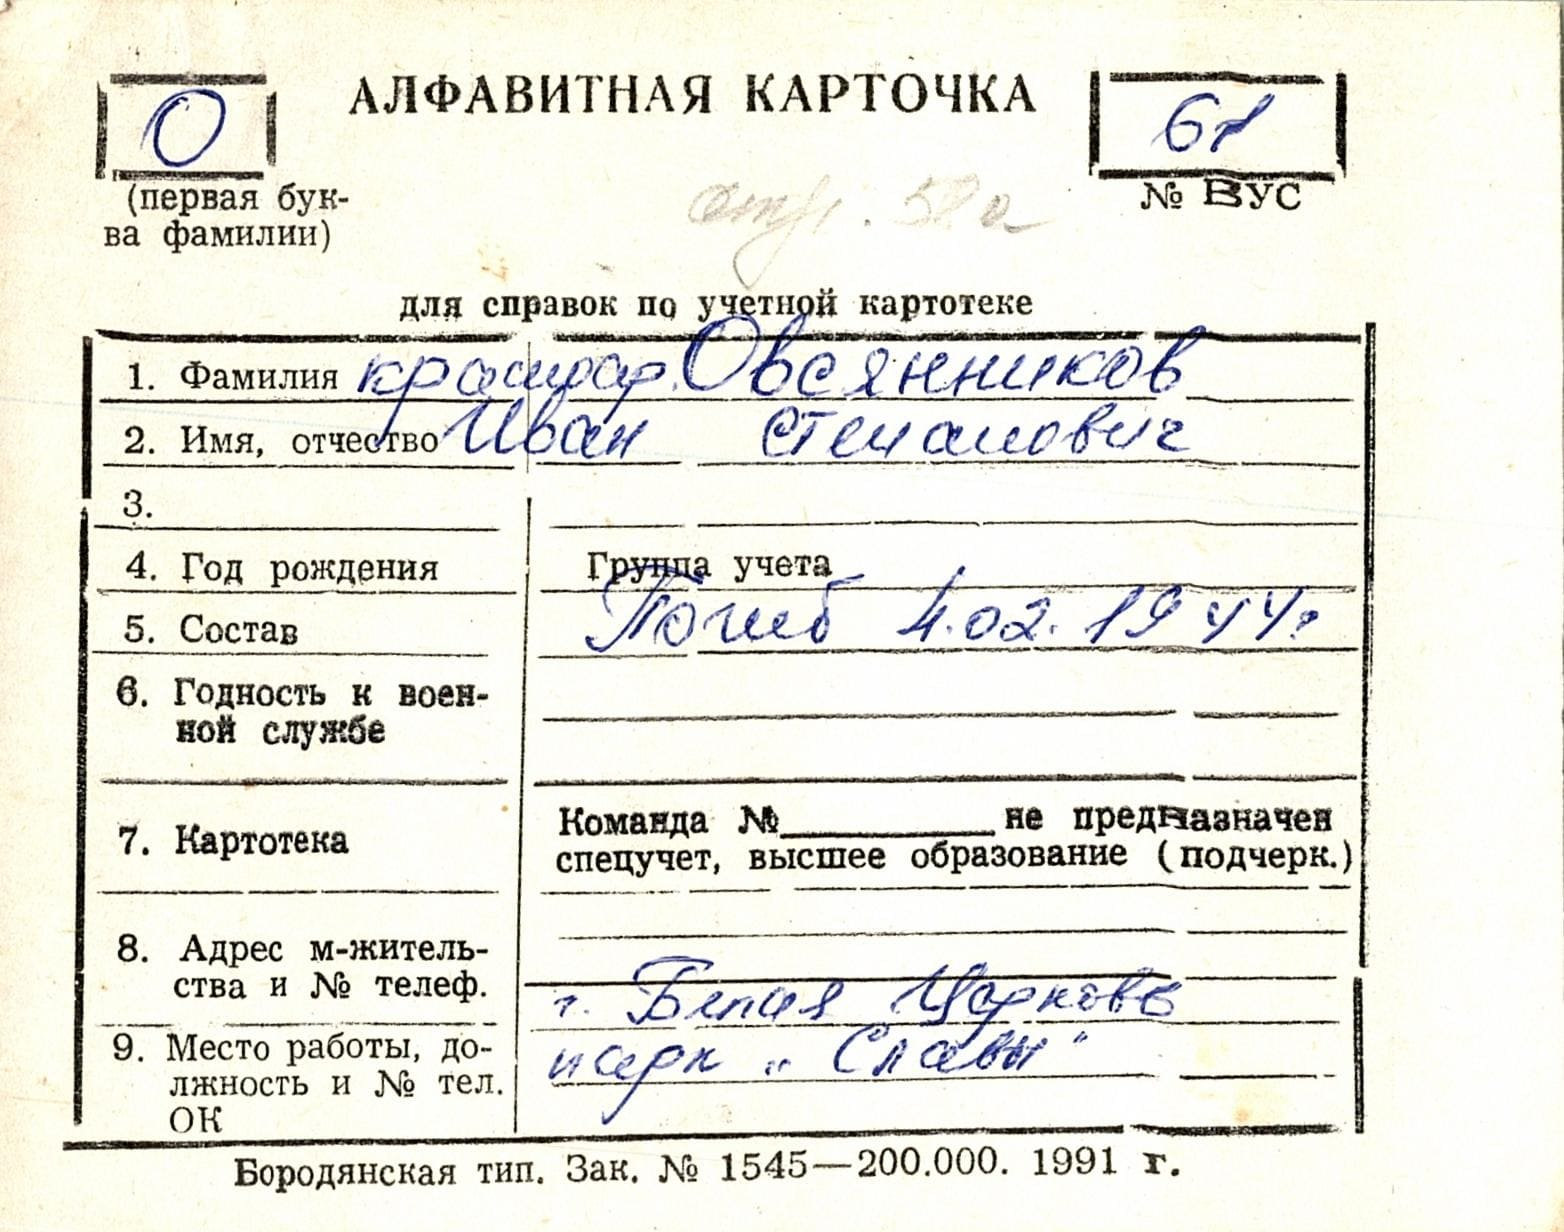 АЛФАВИТНАЯ КАРТОЧКА
О
(первая бук-
ва фамилии)
№ ВУС
для справок по учетной картотеке
1. Фамилия Овсянников
2. Имя, отчество Иван Степанович
3.
4. Год рождения Группа учета
5. Состав Погиб 4.02.1944г
6. Годность к воен-
ной службе
7. Картотека
Команда № не предназначен
спецучет, высшее образование (подчерк.)
8. Адрес м-житель-
ства и № телеф.
г. Белая Церковь
9. Место работы, до-
лжность и № тел.
ОК
парк „Славы"
Бородянская тип. Зак. № 1545—200.000. 1991 г.